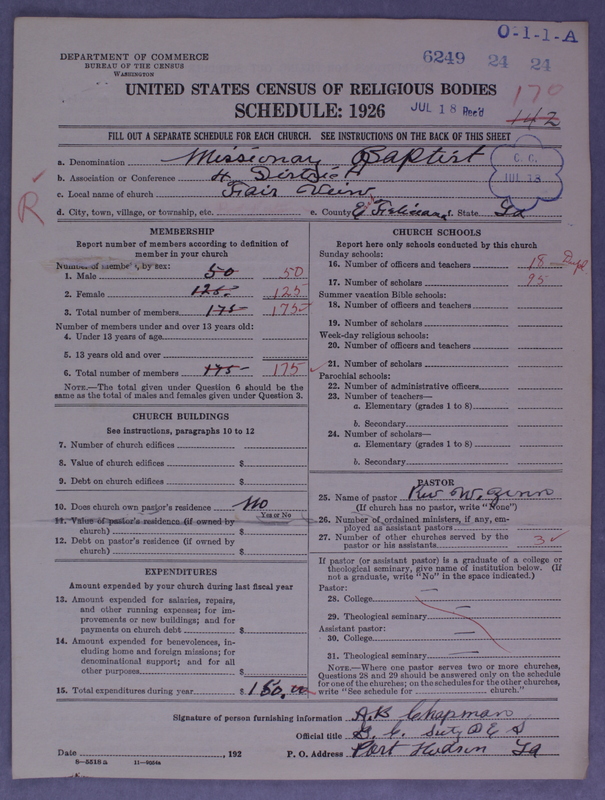 O-1-1-A
DEPARTMENT OF COMMERCE
BUREAU OF THE CENSUS
WASHINGTON
6249 24 24
UNITED STATES CENSUS OF RELIGIOUS BODIES
170
SCHEDULE: 1926
JUL 18 Rec'd
142
FILL OUT A SEPARATE SCHEDULE FOR EACH CHURCH. SEE INSTRUCTIONS ON THE BACK OF THIS SHEET
a. Denomination Missionary Baptist
C. C.
JUL 18
b. Association or Conference 4 District
c. Local name of church Fair View
R
d. City, town, village, or township, etc. e. County E Feliciana f. State La
MEMBERSHIP
Report number of members according to definition of
member in your church
Number of members, by sex:
1. Male 50 50
2. Female 125 125
3. Total number of members 175 175
Number of members under and over 13 years old:
4. Under 13 years of age
5. 13 years old and over
6. Total number of members 175 175
NOTE.—The total given under Question 6 should be the
same as the total of males and females given under Question 3.
CHURCH BUILDINGS
See instructions, paragraphs 10 to 12
7. Number of church edifices
8. Value of church edifices $
9. Debt on church edifices $
10. Does church own pastor's residence No
Yes or No
11. Value of pastor's residence (if owned by
church) $
12. Debt on pastor's residence (if owned by
church) $
EXPENDITURES
Amount expended by your church during last fiscal year
13. Amount expended for salaries, repairs,
and other running expenses; for im-
provements or new buildings; and for
payments on church debt $
14. Amount expended for benevolences, in-
cluding home and foreign missions; for
denominational support; and for all
other purposes $
15. Total expenditures during year $150.00
CHURCH SCHOOLS
Report here only schools conducted by this church
Sunday schools:
16. Number of officers and teachers 18
17. Number of scholars 95
Summer vacation Bible schools:
18. Number of officers and teachers
19. Number of scholars
Week-day religious schools:
20. Number of officers and teachers
21. Number of scholars
Parochial schools:
22. Number of administrative officers
23. Number of teachers—
a. Elementary (grades 1 to 8)
b. Secondary
24. Number of scholars—
a. Elementary (grades 1 to 8)
b. Secondary
PASTOR
25. Name of pastor Rev W.
(If church has no pastor, write "None")
26. Number of ordained ministers, if any, em-
ployed as assistant pastors
27. Number of other churches served by the
pastor or his assistants 3
If pastor (or assistant pastor) is a graduate of a college or
theological seminary, give name of institution below. (If
not a graduate, write "No" in the space indicated.)
Pastor: —
28. College
29. Theological seminary —
Assistant pastor:
30. College —
31. Theological seminary —
NOTE.—Where one pastor serves two or more churches,
Questions 28 and 29 should be answered only on the schedule
for one of the churches; on the schedules for the other churches,
write "See schedule for church."
Signature of person furnishing information A.B Chapman
Official title
Date , 192
P. O. Address Port Hudson La
8—5518a 11—9064a